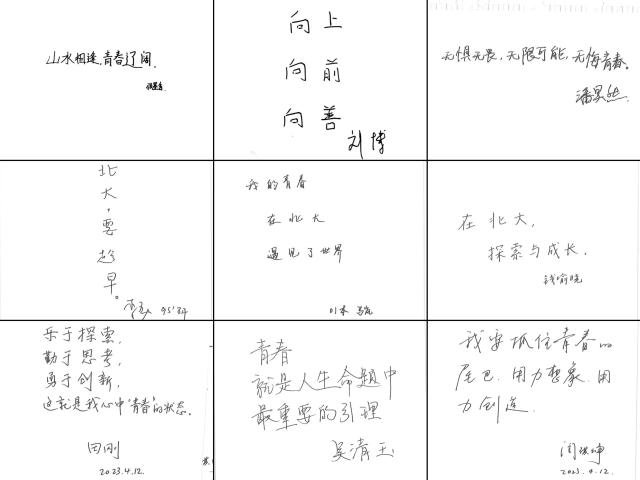 山水相逢,青春辽阔.
向上
向前
向善
刘博
无惧无畏,无限可能,无悔青春。
潘昊然
北大,要趁早。
95'计
我的青春
在北大
遇见了世界
在北大,
探索与成长.
钱喻晓
乐于探索,
勤于思考,
勇于创新,
这就是我心中"青春"的状态.
田刚
2023.4.12.
青春
就是人生命题中
最重要的引理
吴清玉
我要抓住青春的
尾巴.用力想象.用
力创造.
闫洪坤
2023.4.12